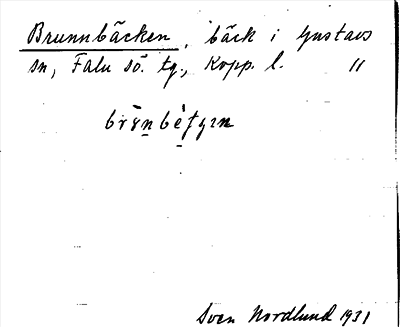 Brunnbäcken, bäck i Gustavs
sn, Falu sö. tg., Kopp. l. "
Sven Nordlund 1931